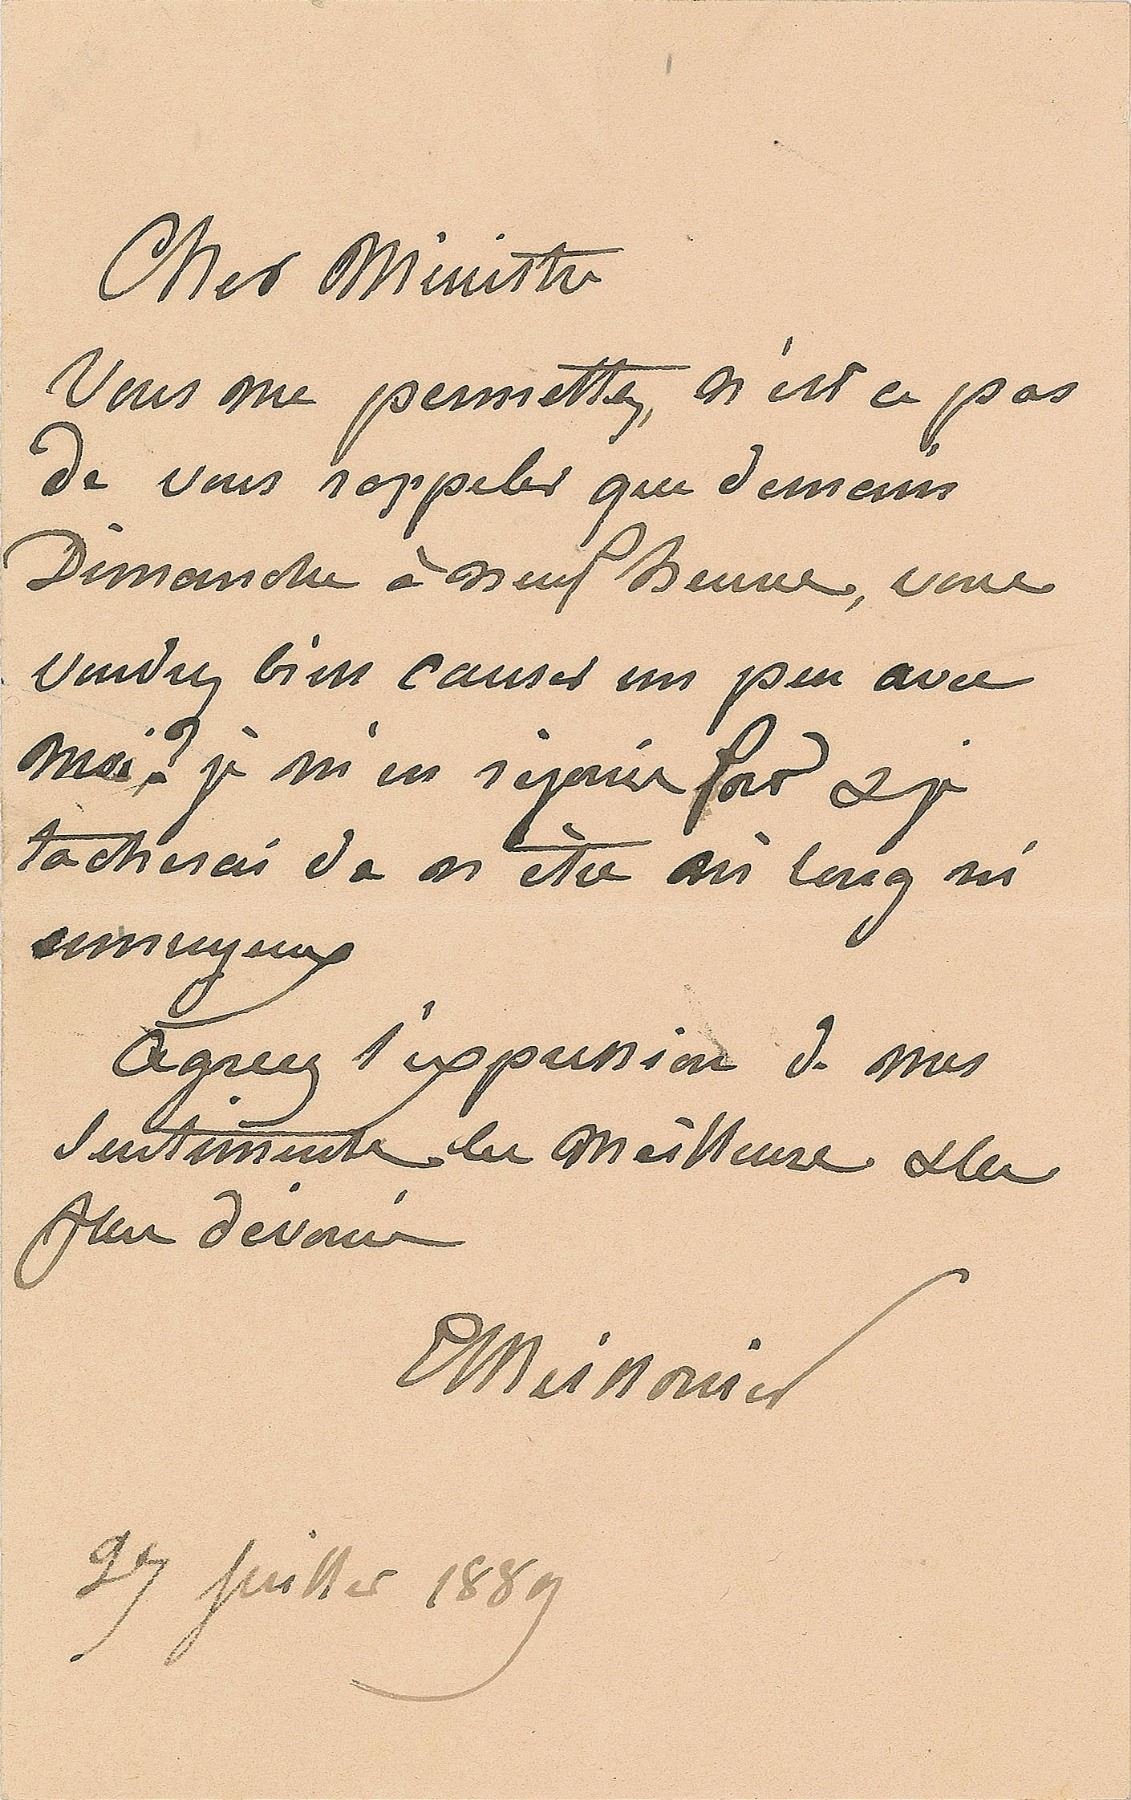 Cher Ministre
Vous me permettez, n'est ce pas
de vous rappeler que demain
Dimanche à neuf heures, vous
voudrez bien causer un peu avec
moi? je m'en réjouis fort & je
tacherai de n'être ni long ni
ennuyeux
Agreez l'expression de mes
sentiments les meilleurs & les
plus dévoués
EMeissonier
27 juillet 1889